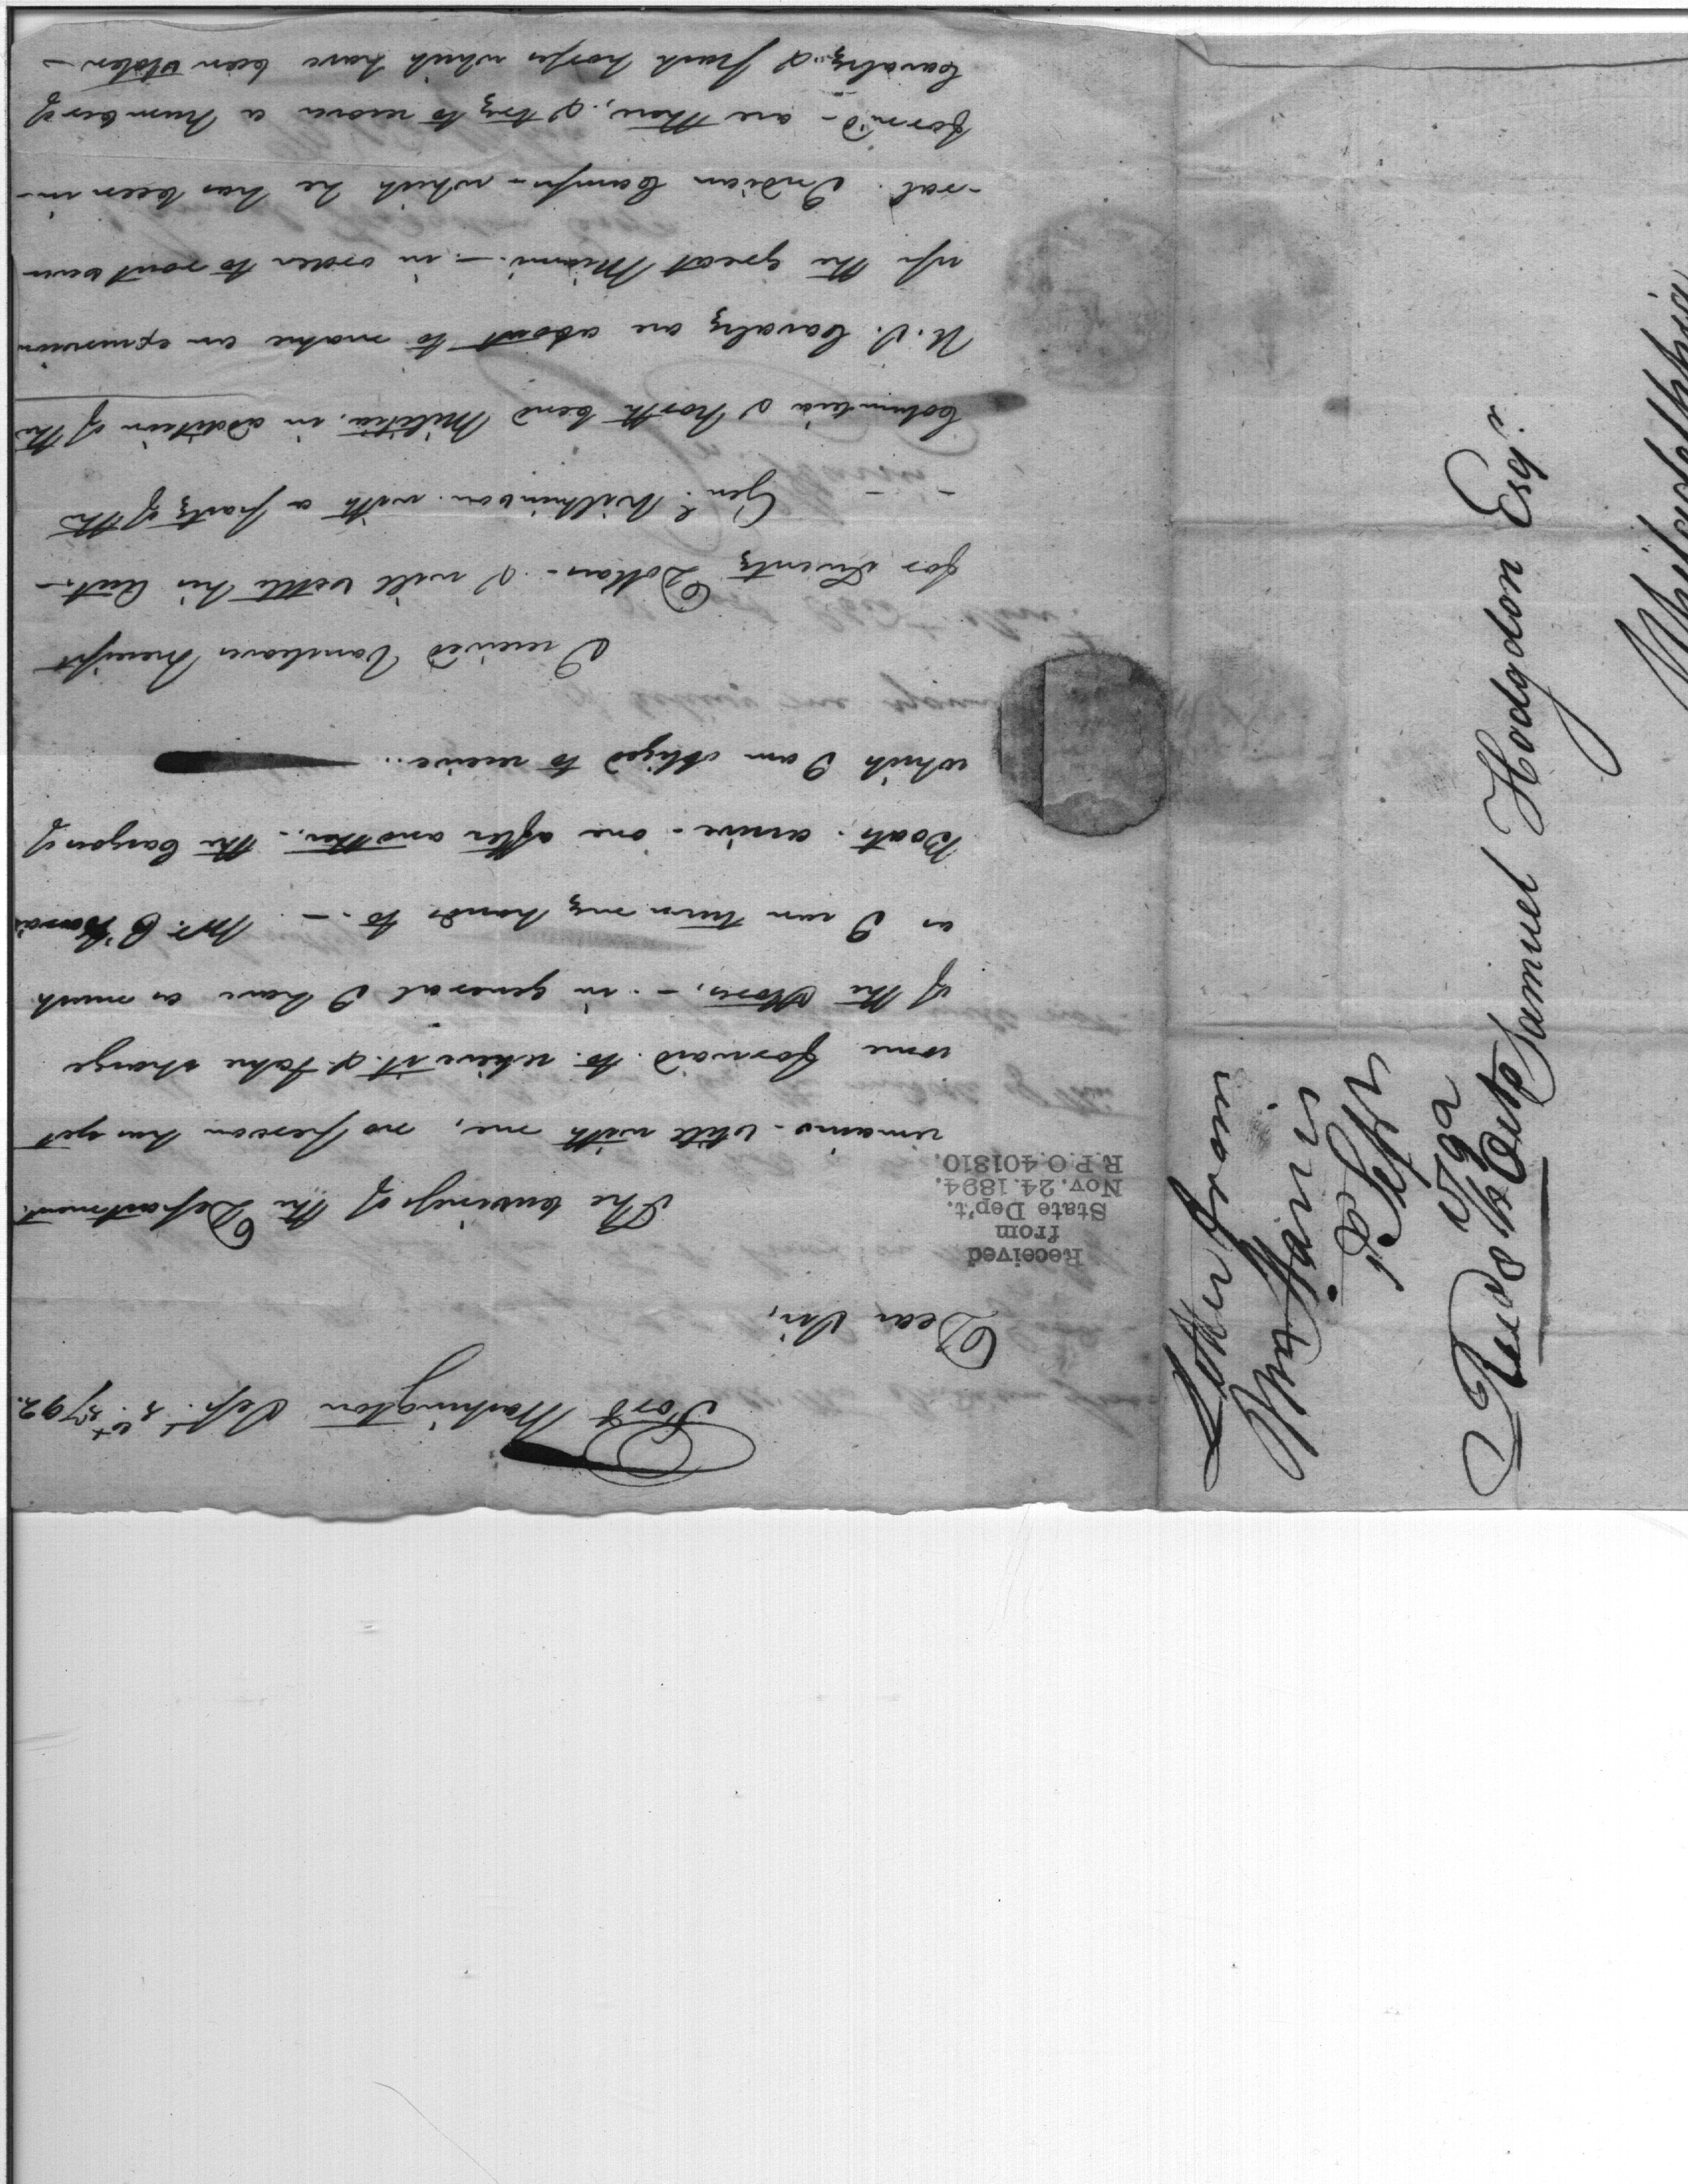 Fort Washington Sept. 2d. 1792.
Dear Sir,
The business of the Department.
remains still with me, no person has yet
come forward to relieve it & take charge
of the stores, — in general I have as much
as I can turn my hands to. — Mr.
Boats arrive - one after another - the Cargoes of
which I am obliged to receive..
I received Vancleaves Receipt
for Twenty Dollars - I will settle his Acct. —
Genl. Wilkinson with a party of the
Columbia & North bend Militia, in addition of the
U.S. Cavalry are about to make an excursion
up the Great Miami — in order to rout seve-
-ral Indian Camps - which he has been in-
-form'd - are there, & try to recover a number of
Cavalry & pack horses which have been stolen —
Received
from
State Dep't.
Nov. 24. 1894.
R.P.O. 401810.
Letter from
Rec'd
Samuel Hodgdon Esqr.
Philadelphia